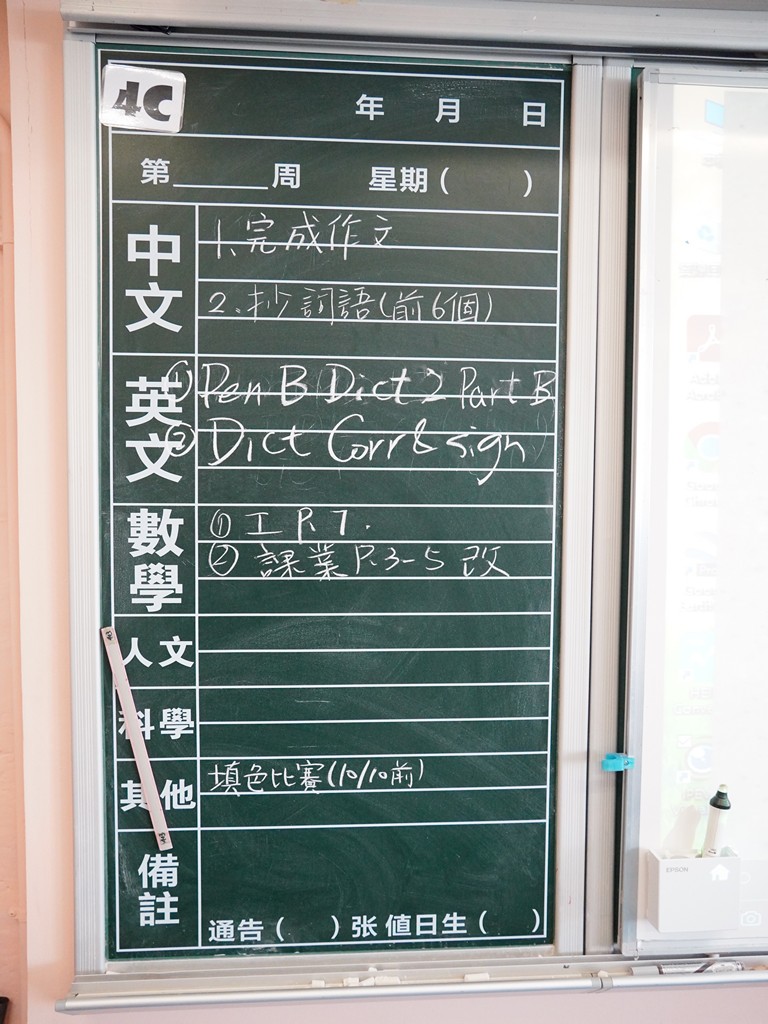 4C
年 月 日
第______周 星期( )
中文
1、完成作文
2、抄詞語(前6個)
英文
① Pen B Dict 2 Part B
② Dict Corr & sign
數學
① 工 P.7.
② 課業 P.3-5 改
人文
科學
其他
填色比賽(10/10前)
備註
通告( )张 值日生( )
EPSON